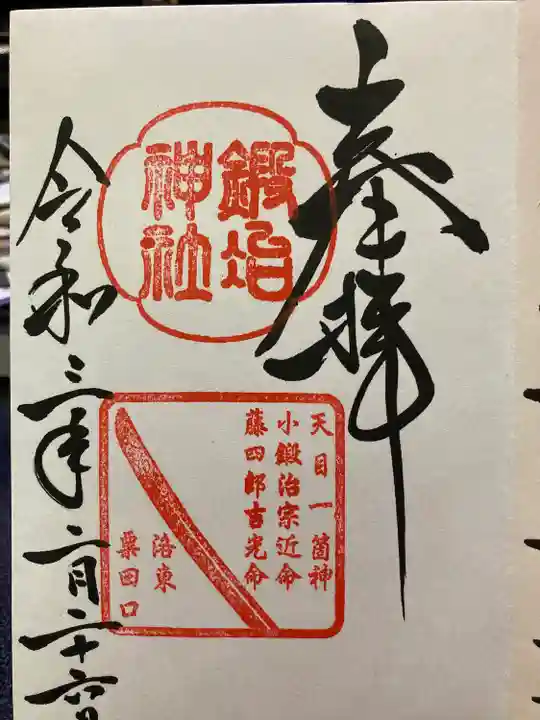 奉拝
鍛冶
神社
天目一箇神
小鍛冶宗近命
藤四郎吉光命
洛東
粟田口
令和三年二月二十六日